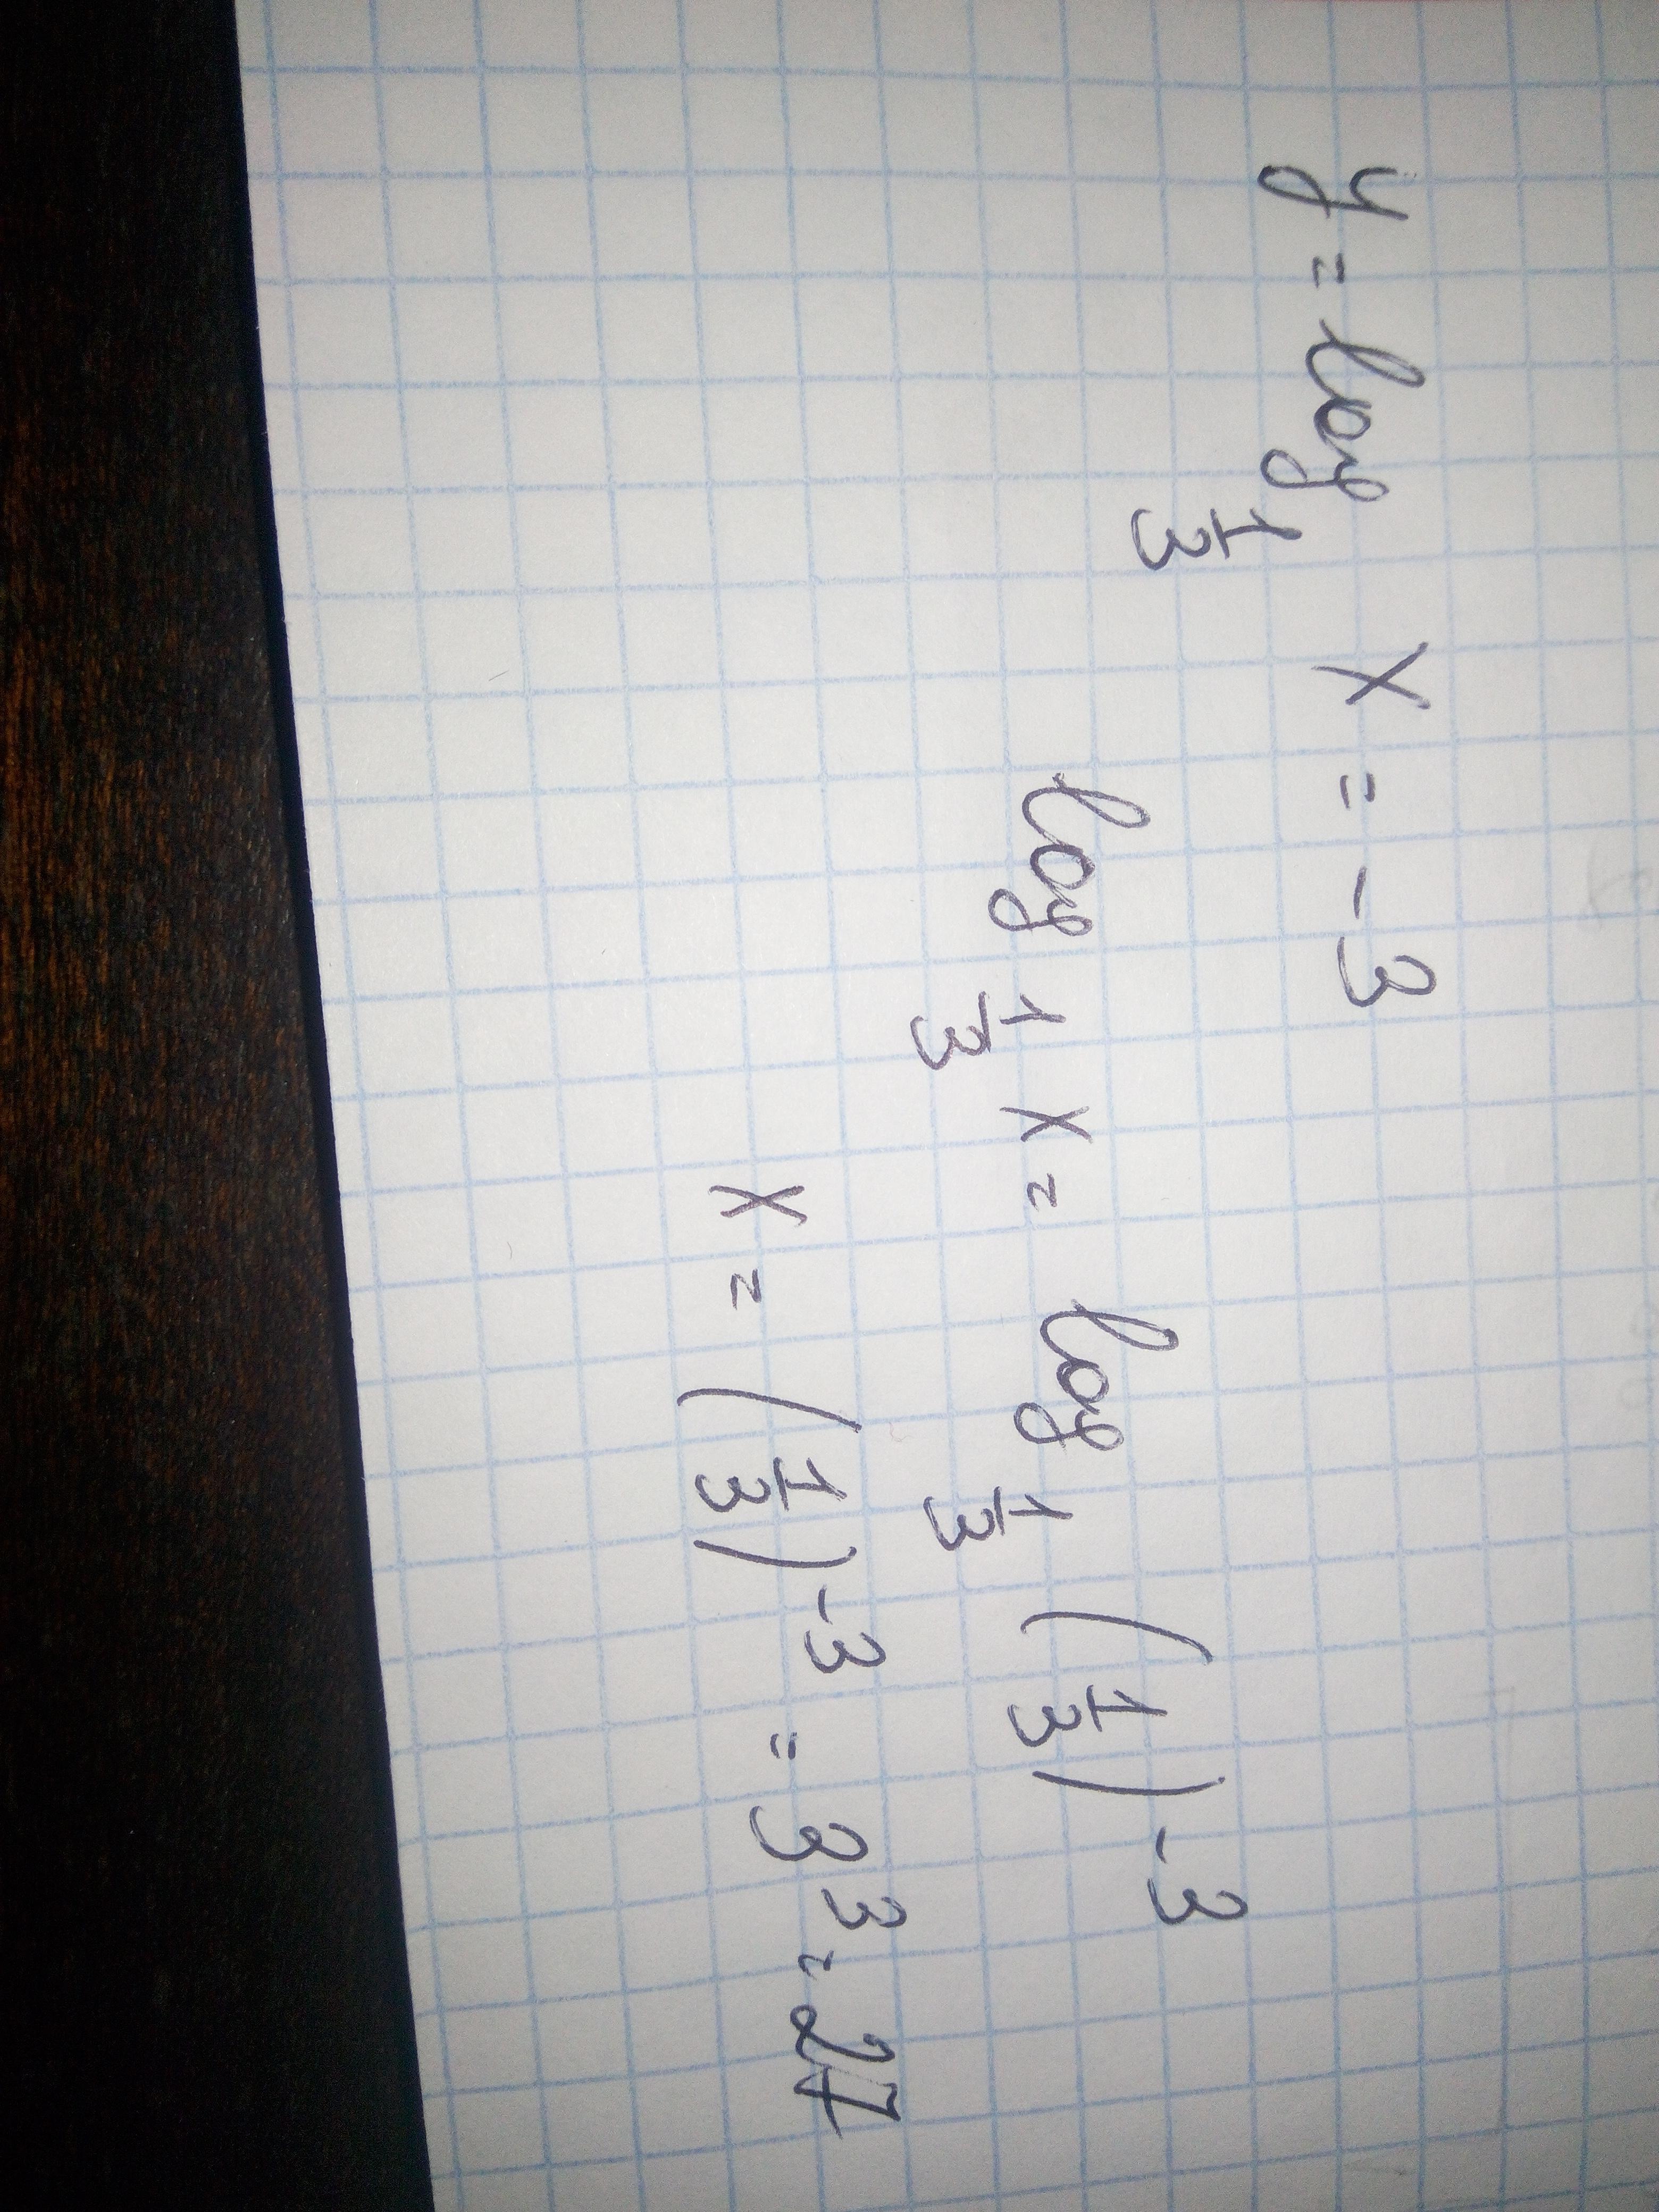 y = log₁/₃ x = -3
log₁/₃ x = log₁/₃ (1/3)⁻³
x = (1/3)⁻³ = 3³ = 27